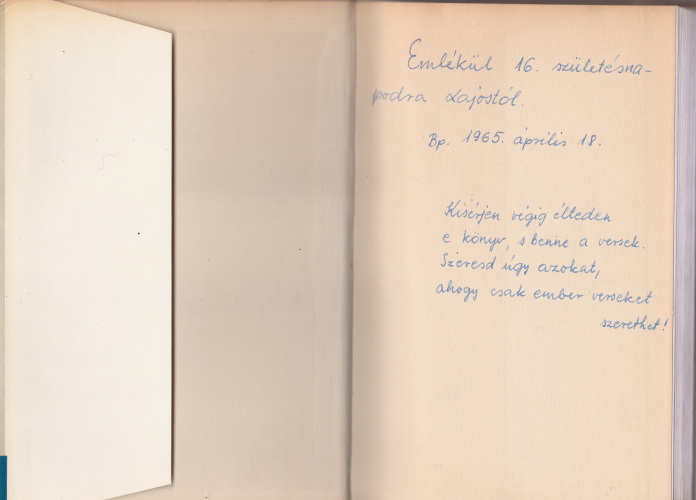 Emlékül 16. születésna-
podra Lajostól.
Bp. 1965. április 18.
Kisérjen végig élteden
e könyv, s benne a versek.
Szeresd úgy azokat,
ahogy csak ember verseket
szerethet!